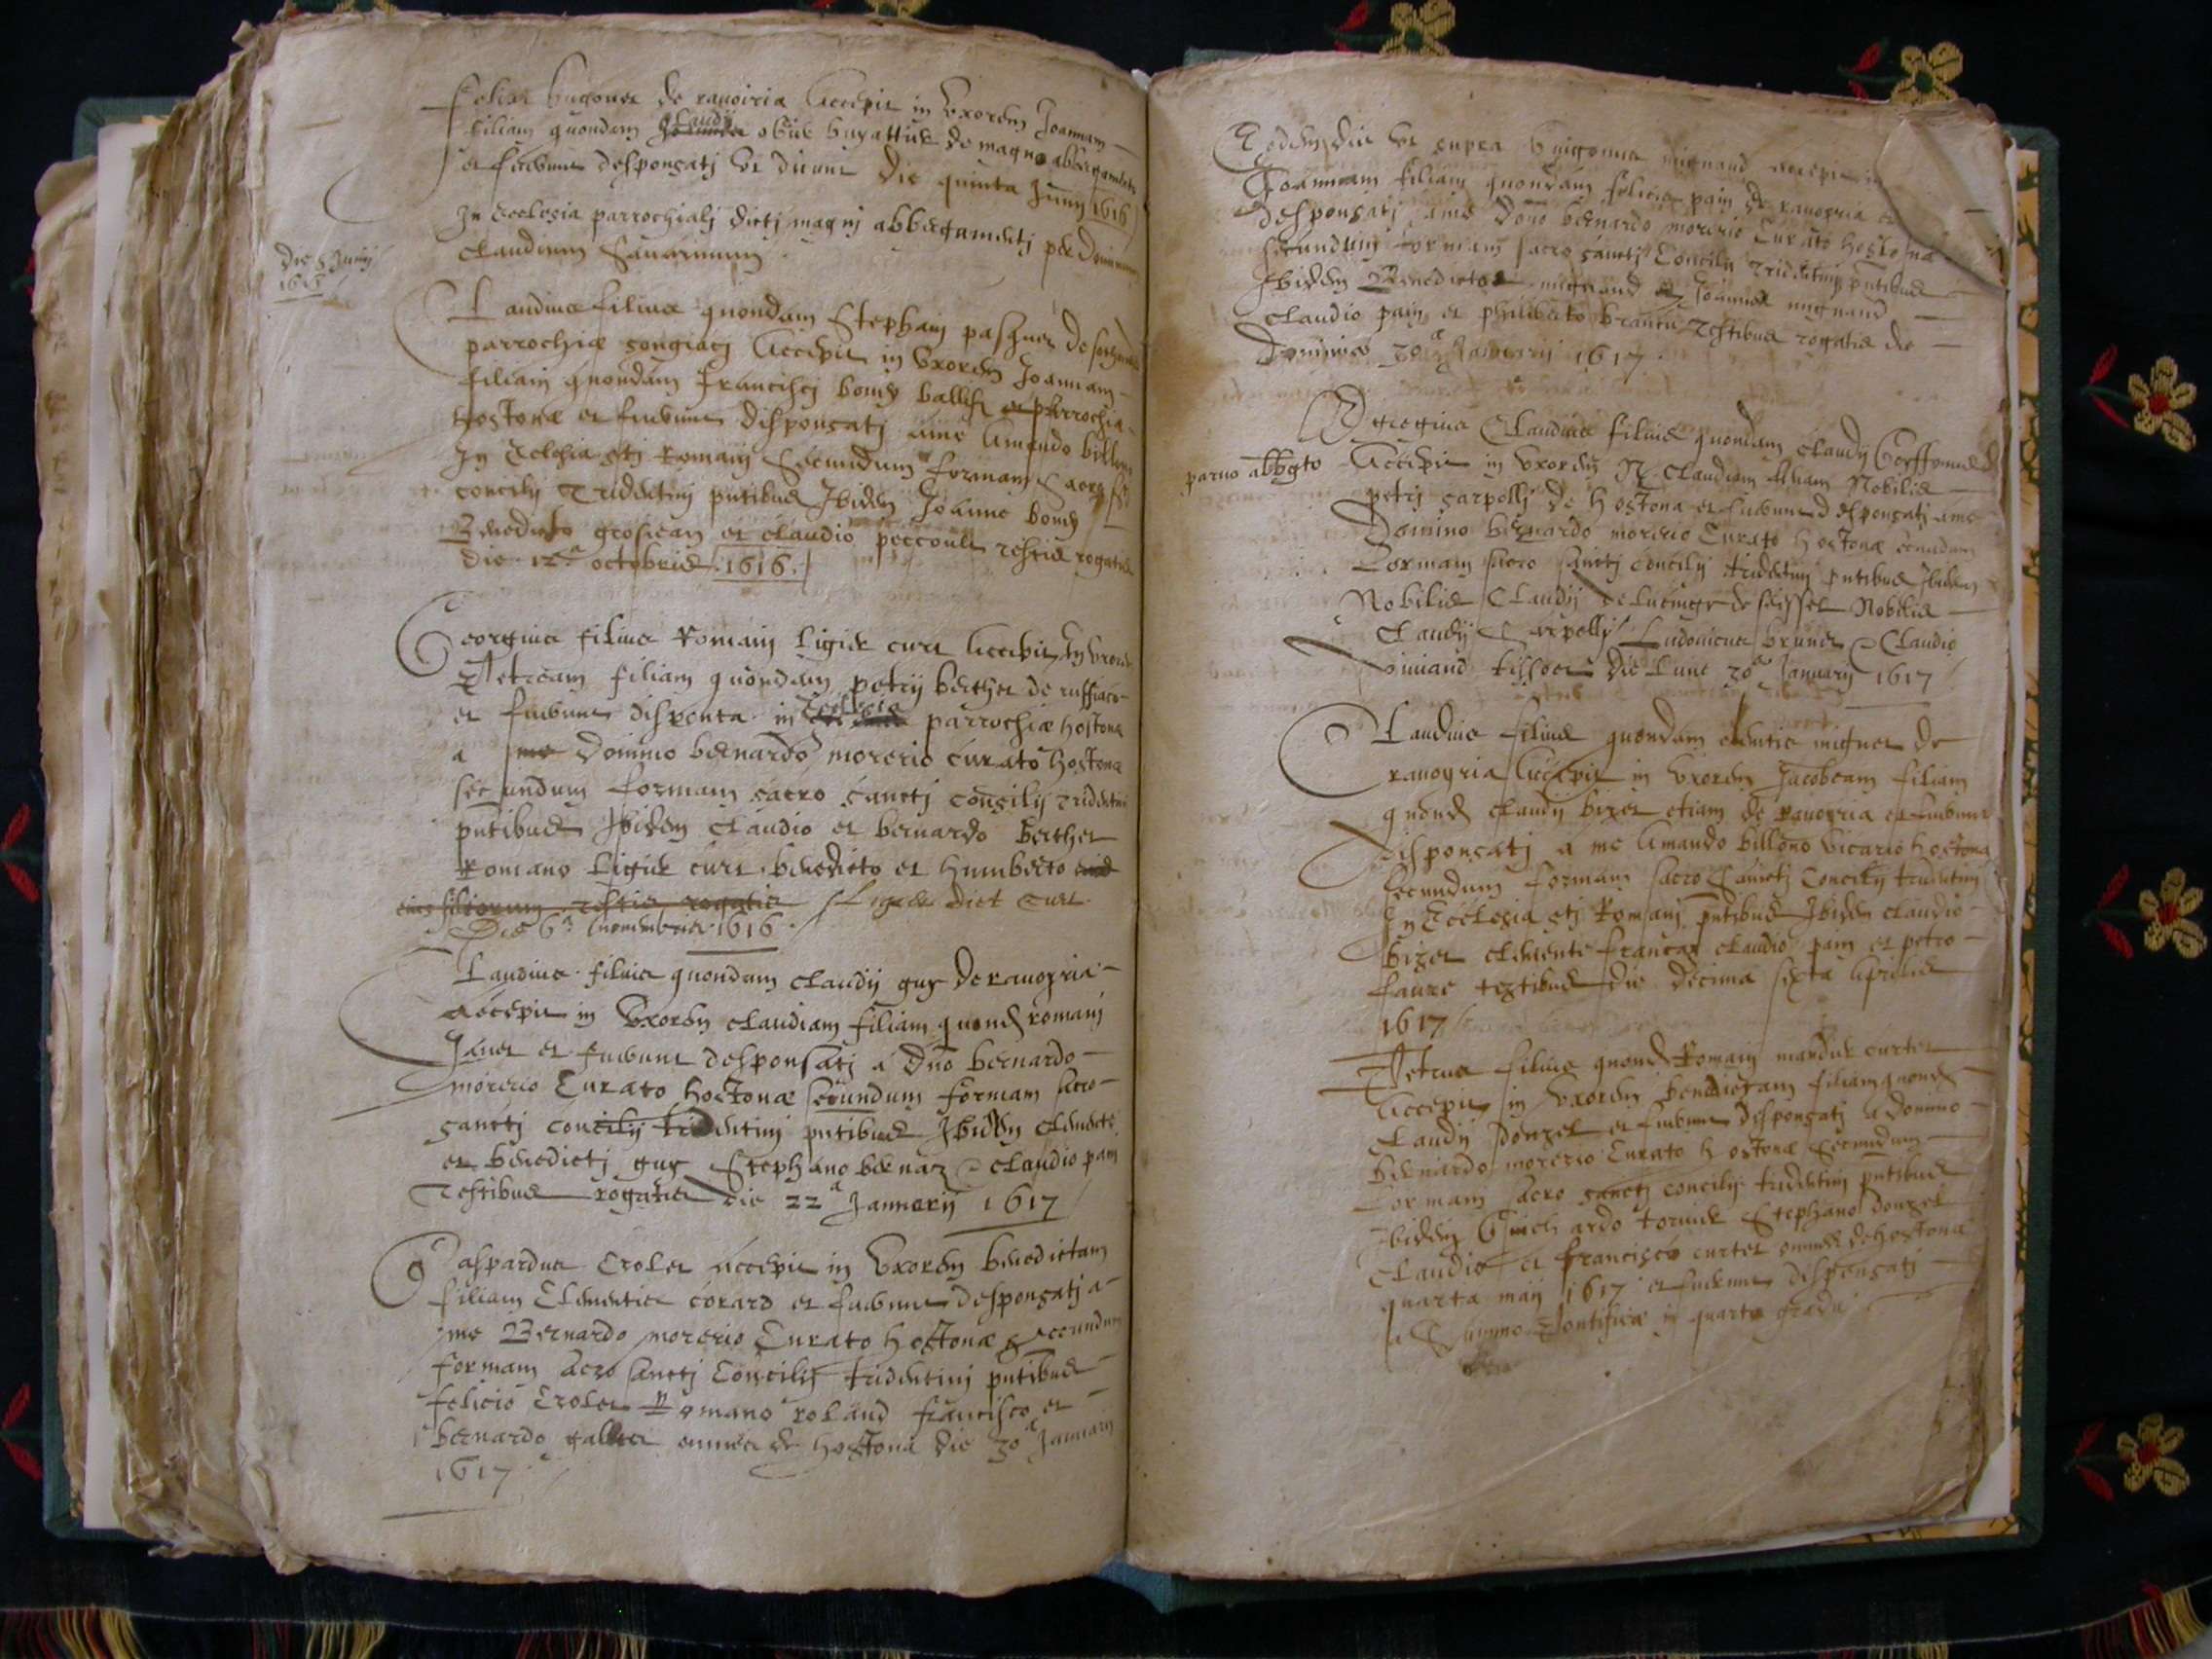 Felix hugonet de ravoiria Accepit in Uxorem Joannam
filiam quondam Claudij de magno abbergamento
et fuerunt desponsatj ut dicunt die quinta Junij 1616
In Ecclesia parrochialj dictj magnj abbergamentj per Dominum
Claudium Savarinum
die 5 Junij
1616
Claudius filius quondam Stephanj pasquet de
parrochiæ songiacj Accepit in Uxorem Joannam
filiam quondam Franciscj bomy parrochiæ
hostonæ et fuerunt disponsatj a me Amando billono
In Ecclesia stj Romanj Secundum formam Sacro stj
concilij Tridentinj pntibus Ibidem Joanne bomy
Benedicto grosjean et claudio peccoult testis rogatis
die 12a octobris 1616
Georgius filius Romanj ligier curt Accepit In Uxorem
Petream filiam quondam petrij berthet de ruffiaco
et fuerunt disponsa in Ecclesia parrochiæ hostonæ
a me Domino bernardo morerio curato hostonæ
secundum formam sacro sanctj consilij Tridentini
pntibus Ibidem claudio et bernardo berthet
Romano ligier curt benedicto et humberto
eius filiorum testis rogatis Ligier dict Curt
Die 6a novembris 1616
Claudius filius quondam claudij guy de ravoyria
accepit in Uxorem claudiam filiam quond romanj
Janet et fuerunt desponsatj a Dno bernardo
morerio Curato hostonæ secundum formam sacro
sanctj concilij tridentinj pntibus Ibidem clemente
et benedictj guy Stephano bernaz et claudio pain
Testibus rogatis die 22a Januarij 1617
Gaspardus Crolet accepit in Uxorem benedictam
filiam Clementis corard et fuerunt desponsatj a
me Bernardo morerio Curato hostonæ Secundum
formam sacro sanctj Concilij tridentinj pntibus
felicio Crolet Romano roland francisco et
bernardo galliet omnes de hostona die 30a Januarij
1617
Eodem die ut supra hugonus mignand accepit in
Joannam filiam quondam felicis pain de ravoyria
desponsatj a me Dono bernardo morerio Curato hostonæ
secundum formam sacro sanctj Concilij Tridentinj pntibus
Ibidem Benedictus mignand et Joannes mignand
Claudio pain et philiberto brantu Testibus rogatis die
Dominica 30a Januarij 1617
Egregius Claudius filius quondam claudij de
parvo abbgto Accepit in Uxorem N. Claudiam filiam Nobilis
petrj sarpollj de hostona et fuerunt desponsatj a me
Domino bernardo morerio Curato hostonæ secundum
formam sacro sanctj concilij tridentinj pntibus Ibidem
Nobilis Claudij de lucinge de seissel Nobilis
Claudij Sarpollj Ludovicus brunet et Claudio
tissoet die Lune 30a Januarij 1617
Claudius filius quondam clementis mignet de
ravoyria Accepit in Uxorem Jacobeam filiam
quond claudij bizet etiam de Ravoyria et fuerunt
disponsatj a me Amando billono vicario hostonæ
secundum formam sacro Sanctj Concilij tridentinj
In Ecclesia stj Romanj pntibus Ibidem claudio
bizet clemente francay claudio pain et petro
faure testibus die decima sexta Aprilis
1617
Petrus filius quond Romanj curtet
Accepit in Uxorem benedictam filiam quond
Claudij donzel et fuerunt desponsatj a domino
bernardo morerio Curato hostonæ secundum
formam sacro sanctj concilij tridentinj pntibus
Ibidem Guichardo tornier Stephano donzel
Claudio et francisco curtet omnes de hostona
quarta maij 1617 et fuerunt dispensatj
a Summo Pontifice in quarto gradu